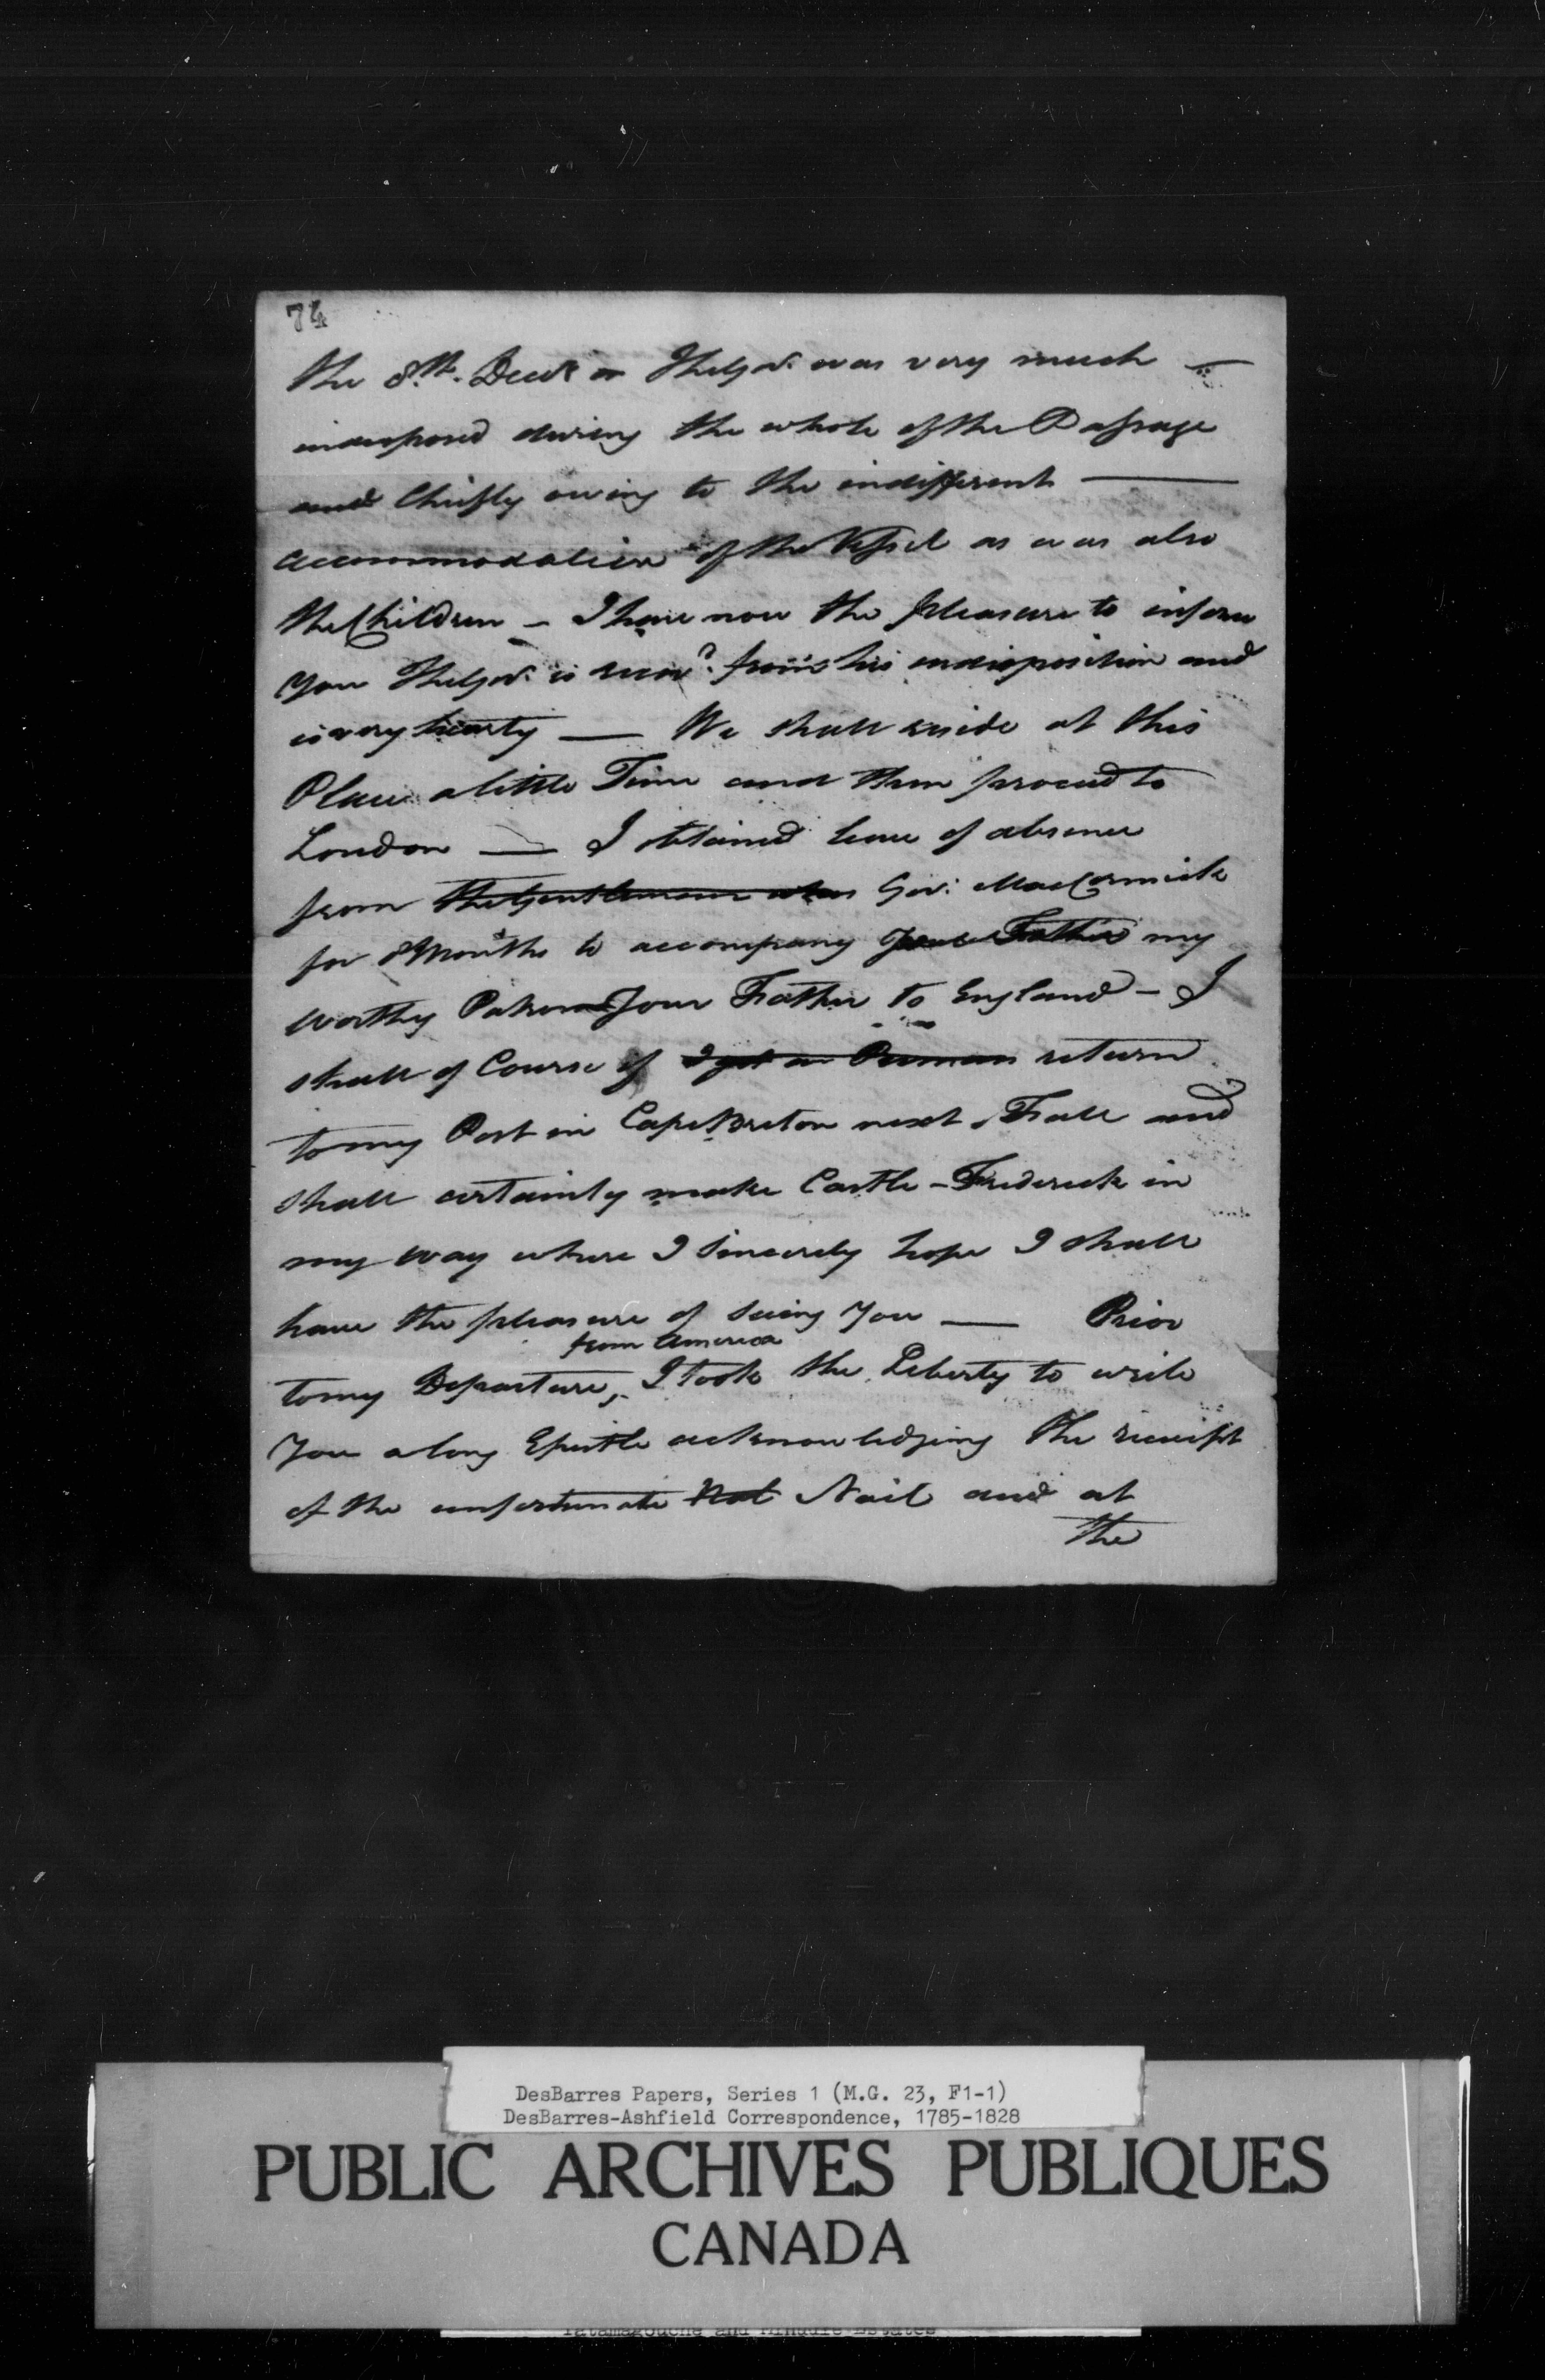 74
the 8.th Decr. The Gov. was very much —
indisposed during the whole of the Passage
and Chiefly owing to the indifferent —
accommodation of the Vessel as was also
the Children – I have now the pleasure to inform
You The Gov. is recov.d from his indisposition and
is very hearty — We shall reside at this
Place a little Time and then proceed to
London — I obtained leave of absence
from the Gentleman who Gov: MacCormick
for 8 Months to accompany your Father my
worthy Patron Your Father to England – I
shall of Course if I get no return
to my Post in Cape Breton next Fall and
shall certainly make Castle-Frederick in
my way where I sincerely hope I shall
have the pleasure of seeing You — Prior
from America
to my Departure, I took the Liberty to write
You a long Epistle acknowledging the receipt
of the unfortunate Not Nail and at
the
DesBarres Papers, Series 1 (M.G. 23, F1-1)
DesBarres-Ashfield Correspondence, 1785-1828
PUBLIC ARCHIVES PUBLIQUES
CANADA
Tatamagouche and Minudie Estates